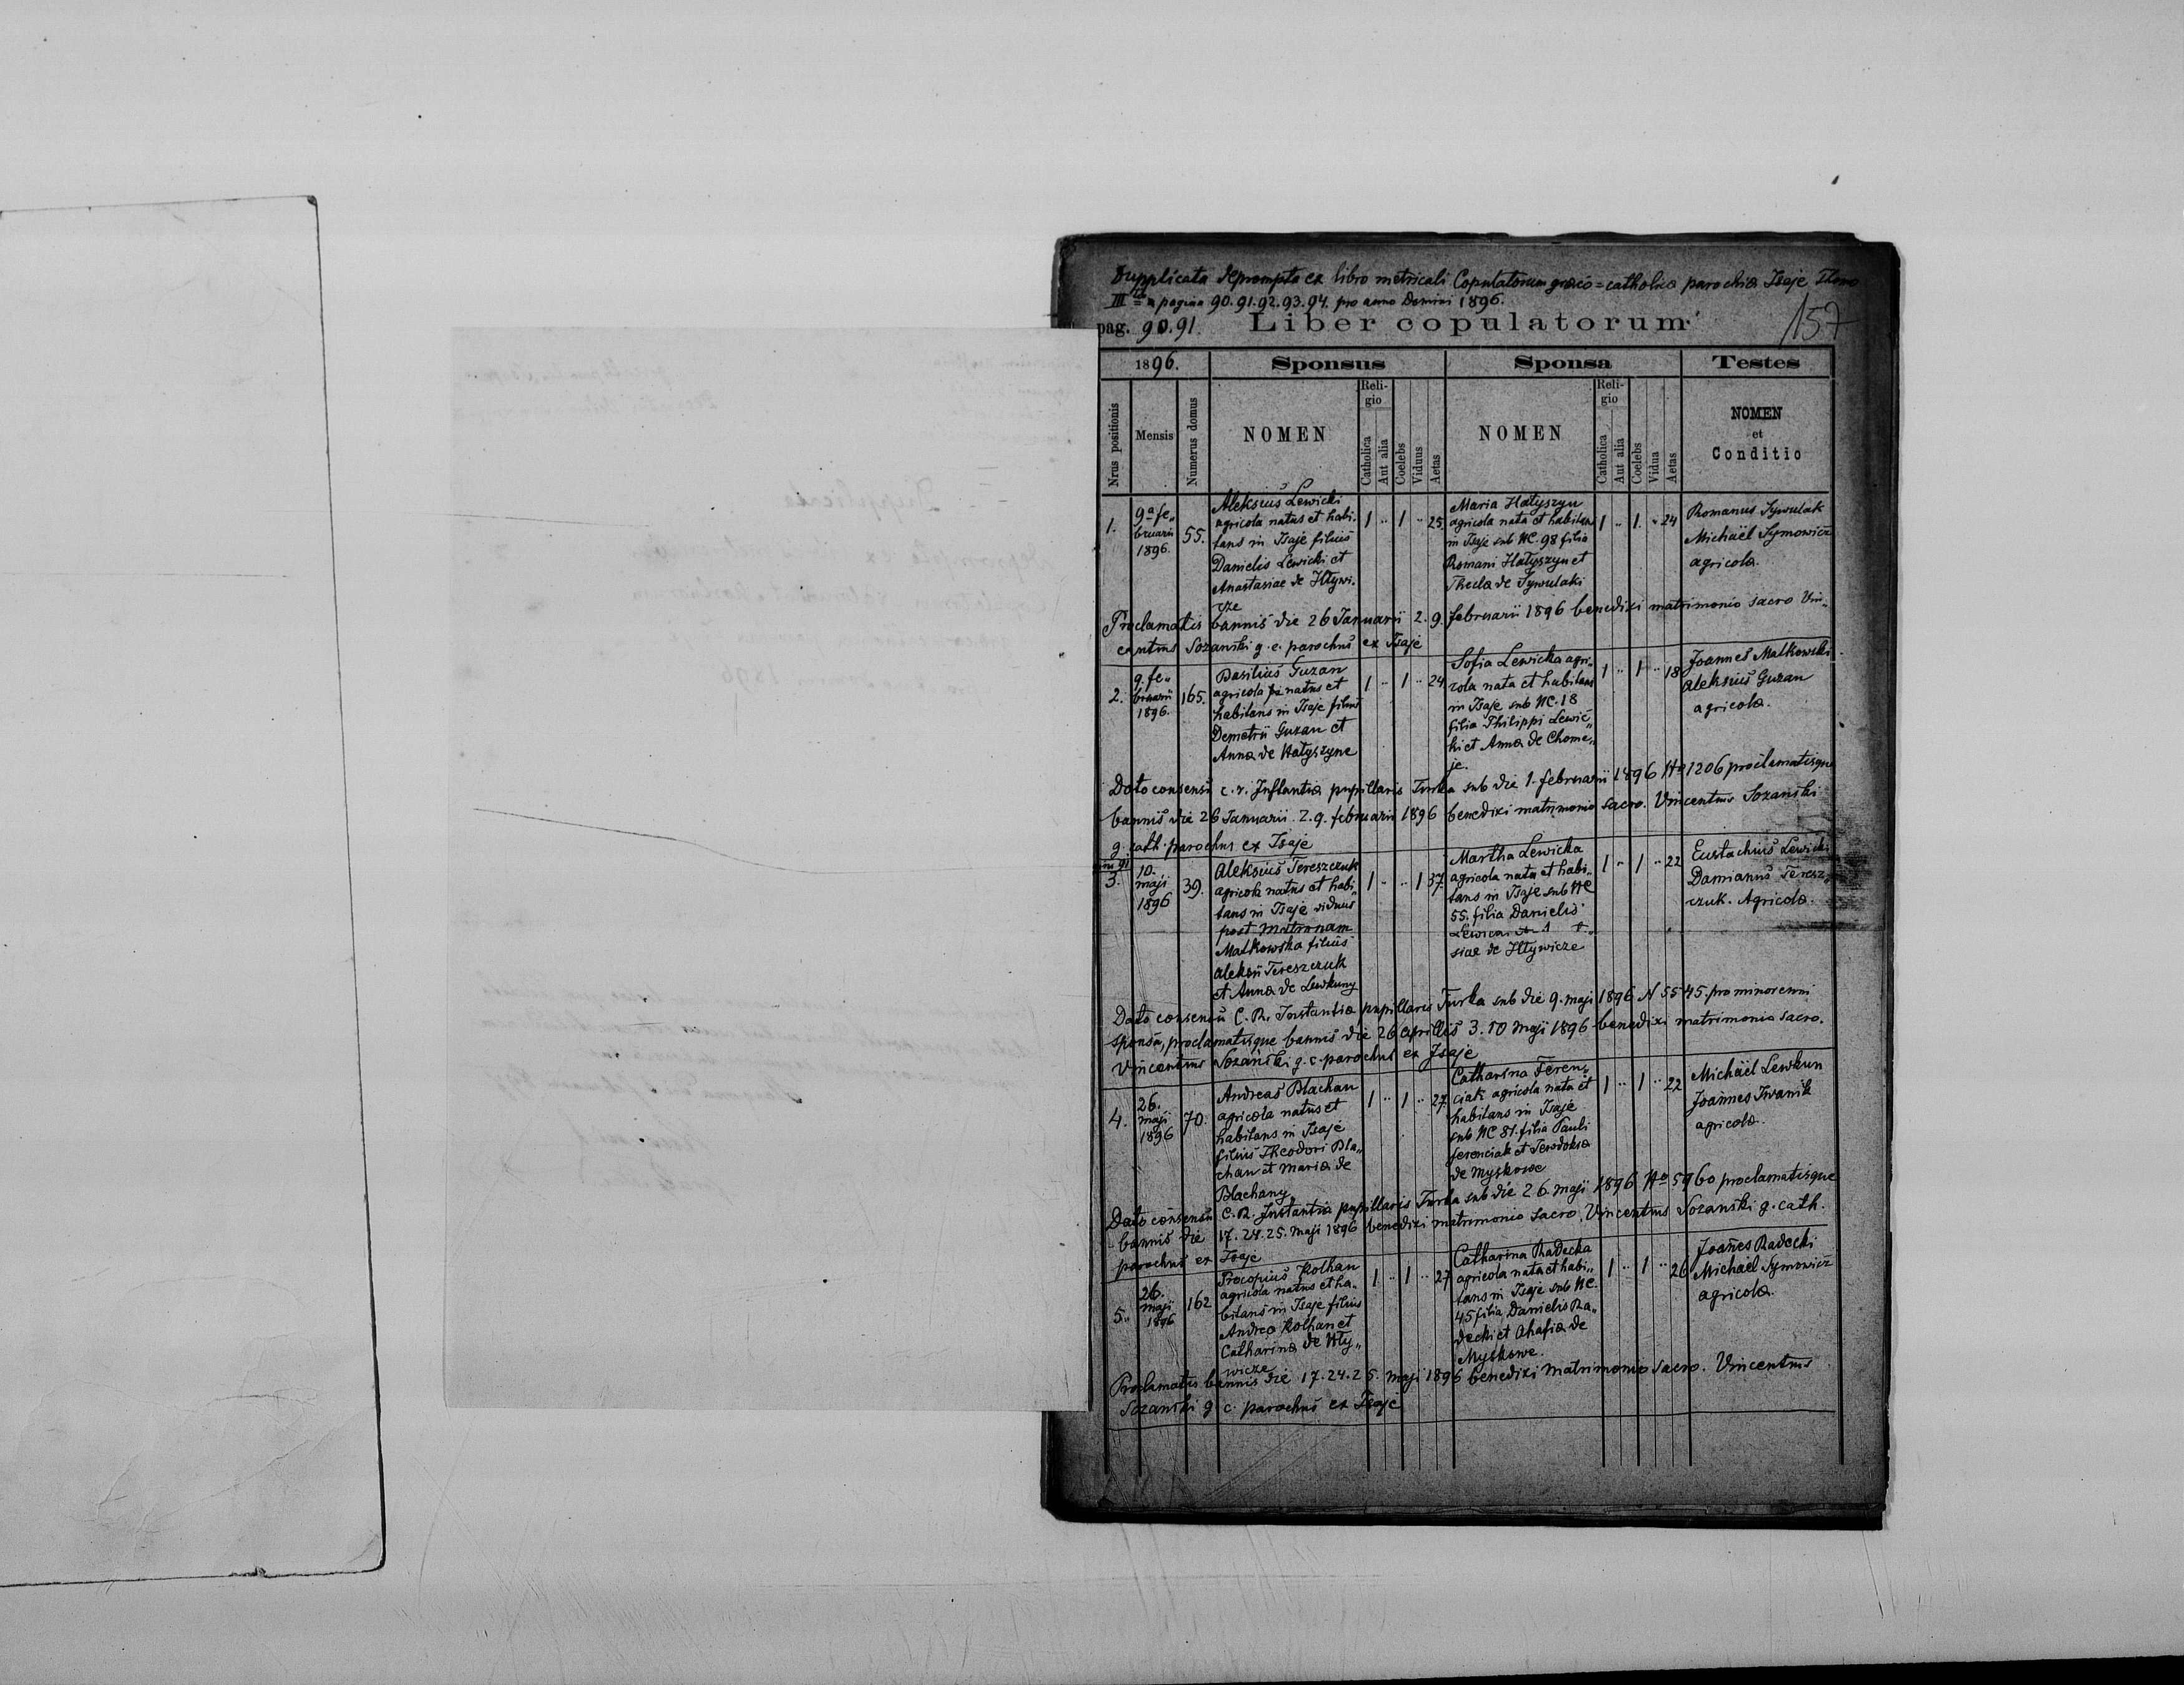 Dupplicata deprompta ex libro metricali Copulatorum graeco=catholica parochia Isaje Thomo
III a pagina 90. 91. 92. 93. 94. pro anno Domini 1896.
pag. 90. 91. Liber copulatorum 157
1896. Sponsus Sponsa Testes
Nrus positionis Mensis Numerus domus NOMEN Religio Catholica Aut alia Coelebs Viduus Aetas NOMEN Religio Catholica Aut alia Coelebs Vidua Aetas NOMEN et Conditio
1.
9a fe„
bruarii
1896.
55.
Aleksius Lewicki
agricola natus et habi„
tans in Isaje filius
Danielis Lewicki et
Anastasiae de Hływi„
cze
1 .. 1 .. 25.
Maria Hałyszyn
agricola nata et habitans
in Isaje sub NC. 98 filia
Romani Hałyszyn et
Thecla de Sywulaki
1 .. 1. .. 24
Romanus Sywulak
Michaël Symowicz
agricola.
Proclamatis bannis die 26 Januarii 2. 9. februarii 1896 benedixi matrimonio sacro Vin„
centius Sozanski g. c. parochus ex Isaje
2.
9. fe„
bruarii
1896.
165.
Basilius Guzan
agricola natus et
habitans in Isaje filius
Demetrii Guzan et
Anna de Hałyszyne
1 .. 1 .. 24
Sofia Lewicka agri„
cola nata et habitans
in Isaje sub NC. 18
filia Philippi Lewic„
ki et Anna de Chome„
je.
1 .. 1 .. 18
Joannes Malkowski
Aleksius Guzan
agricola.
Dato consensu c. r. Instantia pupillaris Turka sub die 1. februarii 1896 No 1206 proclamatisque
bannis die 26 Januarii. 2. 9. februarii 1896 benedixi matrimonio sacro. Vincentius Sozański
g. cath. parochus ex Isaje
3.
10.
maji
1896
39.
Aleksius Tereszczuk
agricola natus et habi„
tans in Isaje viduus
post Matronam
Malkowska filius
Aleksii Tereszczuk
et Anna de Lewkuny
1 .. .. 1 37.
Martha Lewicka
agricola nata et habi„
tans in Isaje sub NC
55. filia Danielis
siae de Hływicze
1 .. 1 .. 22
Eustachius Lewicki
Damianus Teresz„
czuk. Agricola.
Dato consensu C. R. Instantia pupillaris Turka sub die 9. maji 1896 N 5545. pro minorenni
sponsa, proclamatisque bannis die 26 aprillis 3. 10 maji 1896 benedixi matrimonio sacro.
Vincentius Sozański g. c. parochus ex Isaje
4.
26.
maji
1896
70.
Andreas Blachan
agricola natus et
habitans in Isaje
filius Theodori Bla„
chan et Maria de
Blachany
1 .. 1 .. 27.
Catharina Feren„
ciak agricola nata et
habitans in Isaje
sub NC 81. filia Pauli
ferenciak et
de Myskowe
1 .. 1 .. 22
Michaël Lewkun
Joannes Iwanik
agricola.
Dato consensu C. R. Instantia pupillaris Turka sub die 26. maji 1896 No 5960 proclamatisque
bannis die 17. 24. 25. maji 1896 benedixi matrimonio sacro. Vincentius Sozanski g. cath.
parochus ex Isaje
5.
26.
maji
1896
162
Procopius Kolhan
agricola natus et ha„
bitans in Isaje filius
Andrea Kolhan et
Catharina de Hły„
wicze
1 .. 1 .. 27
Catharina Radecka
agricola nata et habi„
tans in Isaje sub NC.
45 filia Danielis Ra„
decki et Ahafia de
Myskowe.
1 .. 1 .. 26
Joannes Radecki
Michaël Symowicz
agricola.
Proclamatis bannis die 17. 24. 25. maji 1896 benedixi matrimonio sacro. Vincentius
Sozanski g. c. parochus ex Isaje